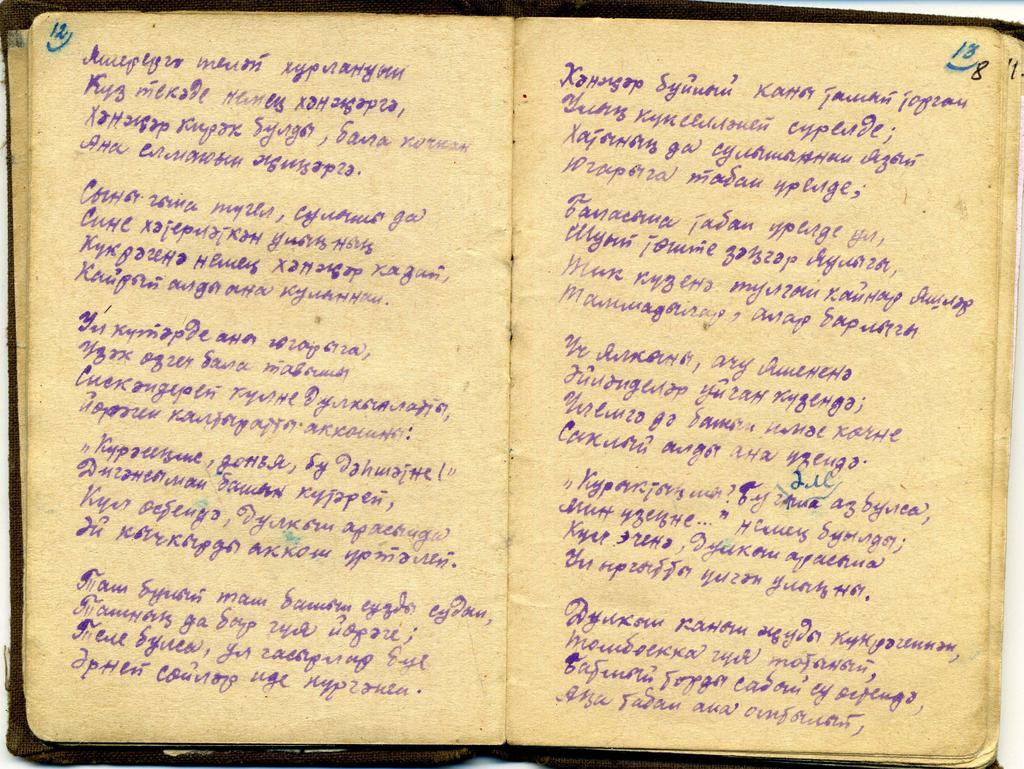 12
Яшерергә теләп хурлануын
Күз текәде немец хәнҗәргә,
Хәнҗәр кирәк булды, бала кочкан
Ана елмаюын җиңәргә.
Сыны гына түгел, сулышы да
Сине хәтерләткән улыңның
Күкрәгенә немец хәнҗәр кадап,
Кайрып алды ана кулыннан.
Ул күтәрде аны югарыга,
Үзәк өзгеч бала тавышы
Сискәндереп күлне дулкынлатты,
Йөрәген калтыратты аккошның:
„Күрәсеңме, дөнья, бу дәһшәтне!"
Дигәнсыман башын күтәреп,
Күл өстендә, дулкын арасында
Әй кычкырды аккош үртәлеп.
Таш булып таш башын сузды судан,
Ташның да бар гүя йөрәге;
Теле булса, ул гасырлар буе
Әрнеп сөйләр иде күргәнен.
13
8
Хәнҗәр буйлап каны тамып торган
Улың күкселләнеп сүрелде;
Хатының да сулышыннан язып
Югарыга табан үрелде;
Баласына табан үрелде ул,
Шуып төште зәңгәр яулыгы,
Тик күзенә тулган кайнар яшьләр
Таммадылар, алар барлыгы
Үч ялкыны, ачу яшененә
Әйләнделәр уйган күзендә;
Үлемгә дә башын имәс көчне
Саклый алды ана үзендә.
„Курыктыңмы? Бу әле аз булса,
Мин үзеңне..." немец буылды;
Күл эченә, дулкын арасына
Ул ыргытты үлгән улыңны.
Дулкын канын җуды күкрәгеннән,
Томбоекка гүя тотынып,
Батмый торды сабый су өстендә,
Аңа табан ана омтылып,